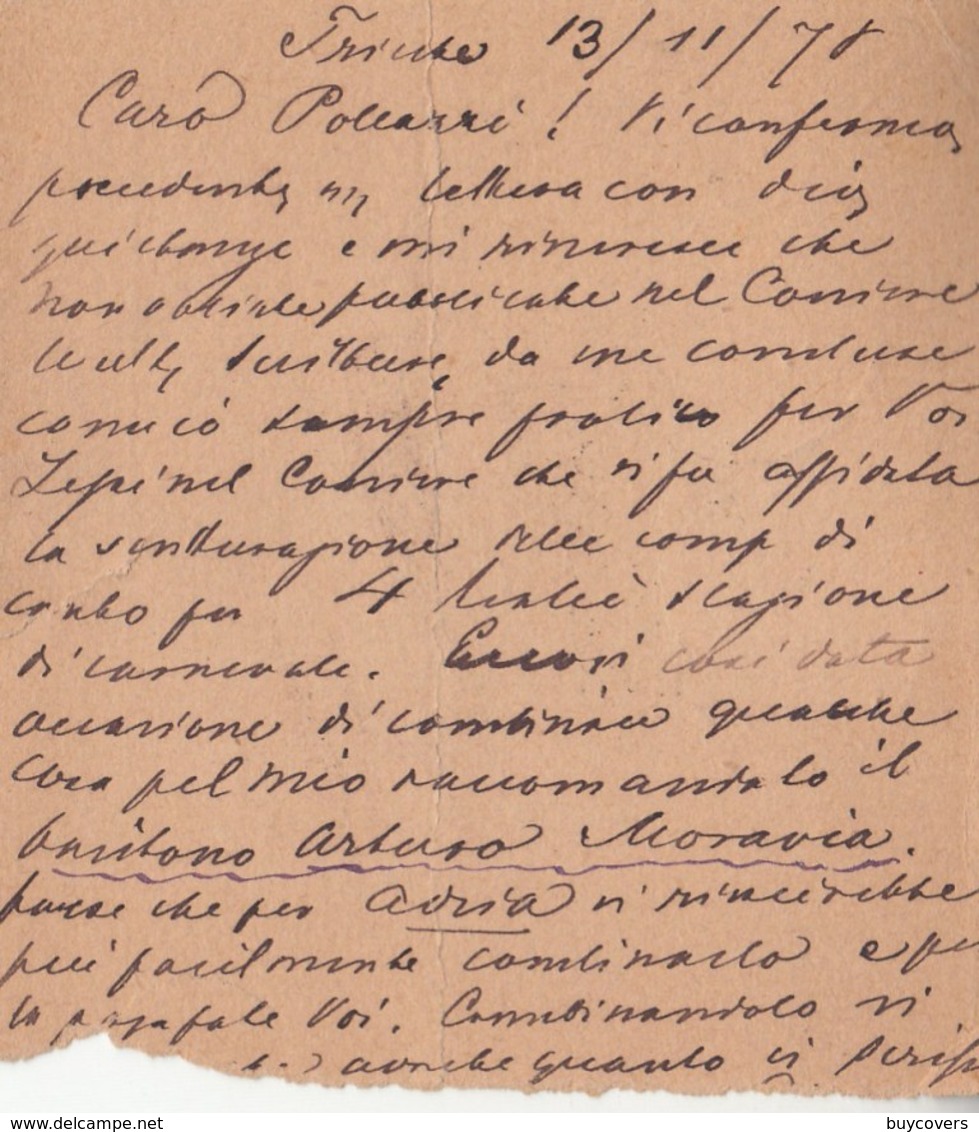 Trieste 13/11/78
Caro Pollazzi! Vi confermo
precedente mia lettera con
e mi rincresce che
non abbiate pubblicate nel Corriere
scritture da me concluse
ciò sempre pratico per Voi
Lessi nel Corriere che vi fu affidata
la scritturazione delle comp di
canto per 4 teatri stagione
di carnevale. Eccovi così data
occasione di combinare qualche
cosa pel mio raccomandato il
baritono Arturo Moravia.
forse che per Adria vi riuscirebbe
più facilmente combinarlo e
la paga fate Voi. Combinandolo vi
anche quanto vi
buycovers